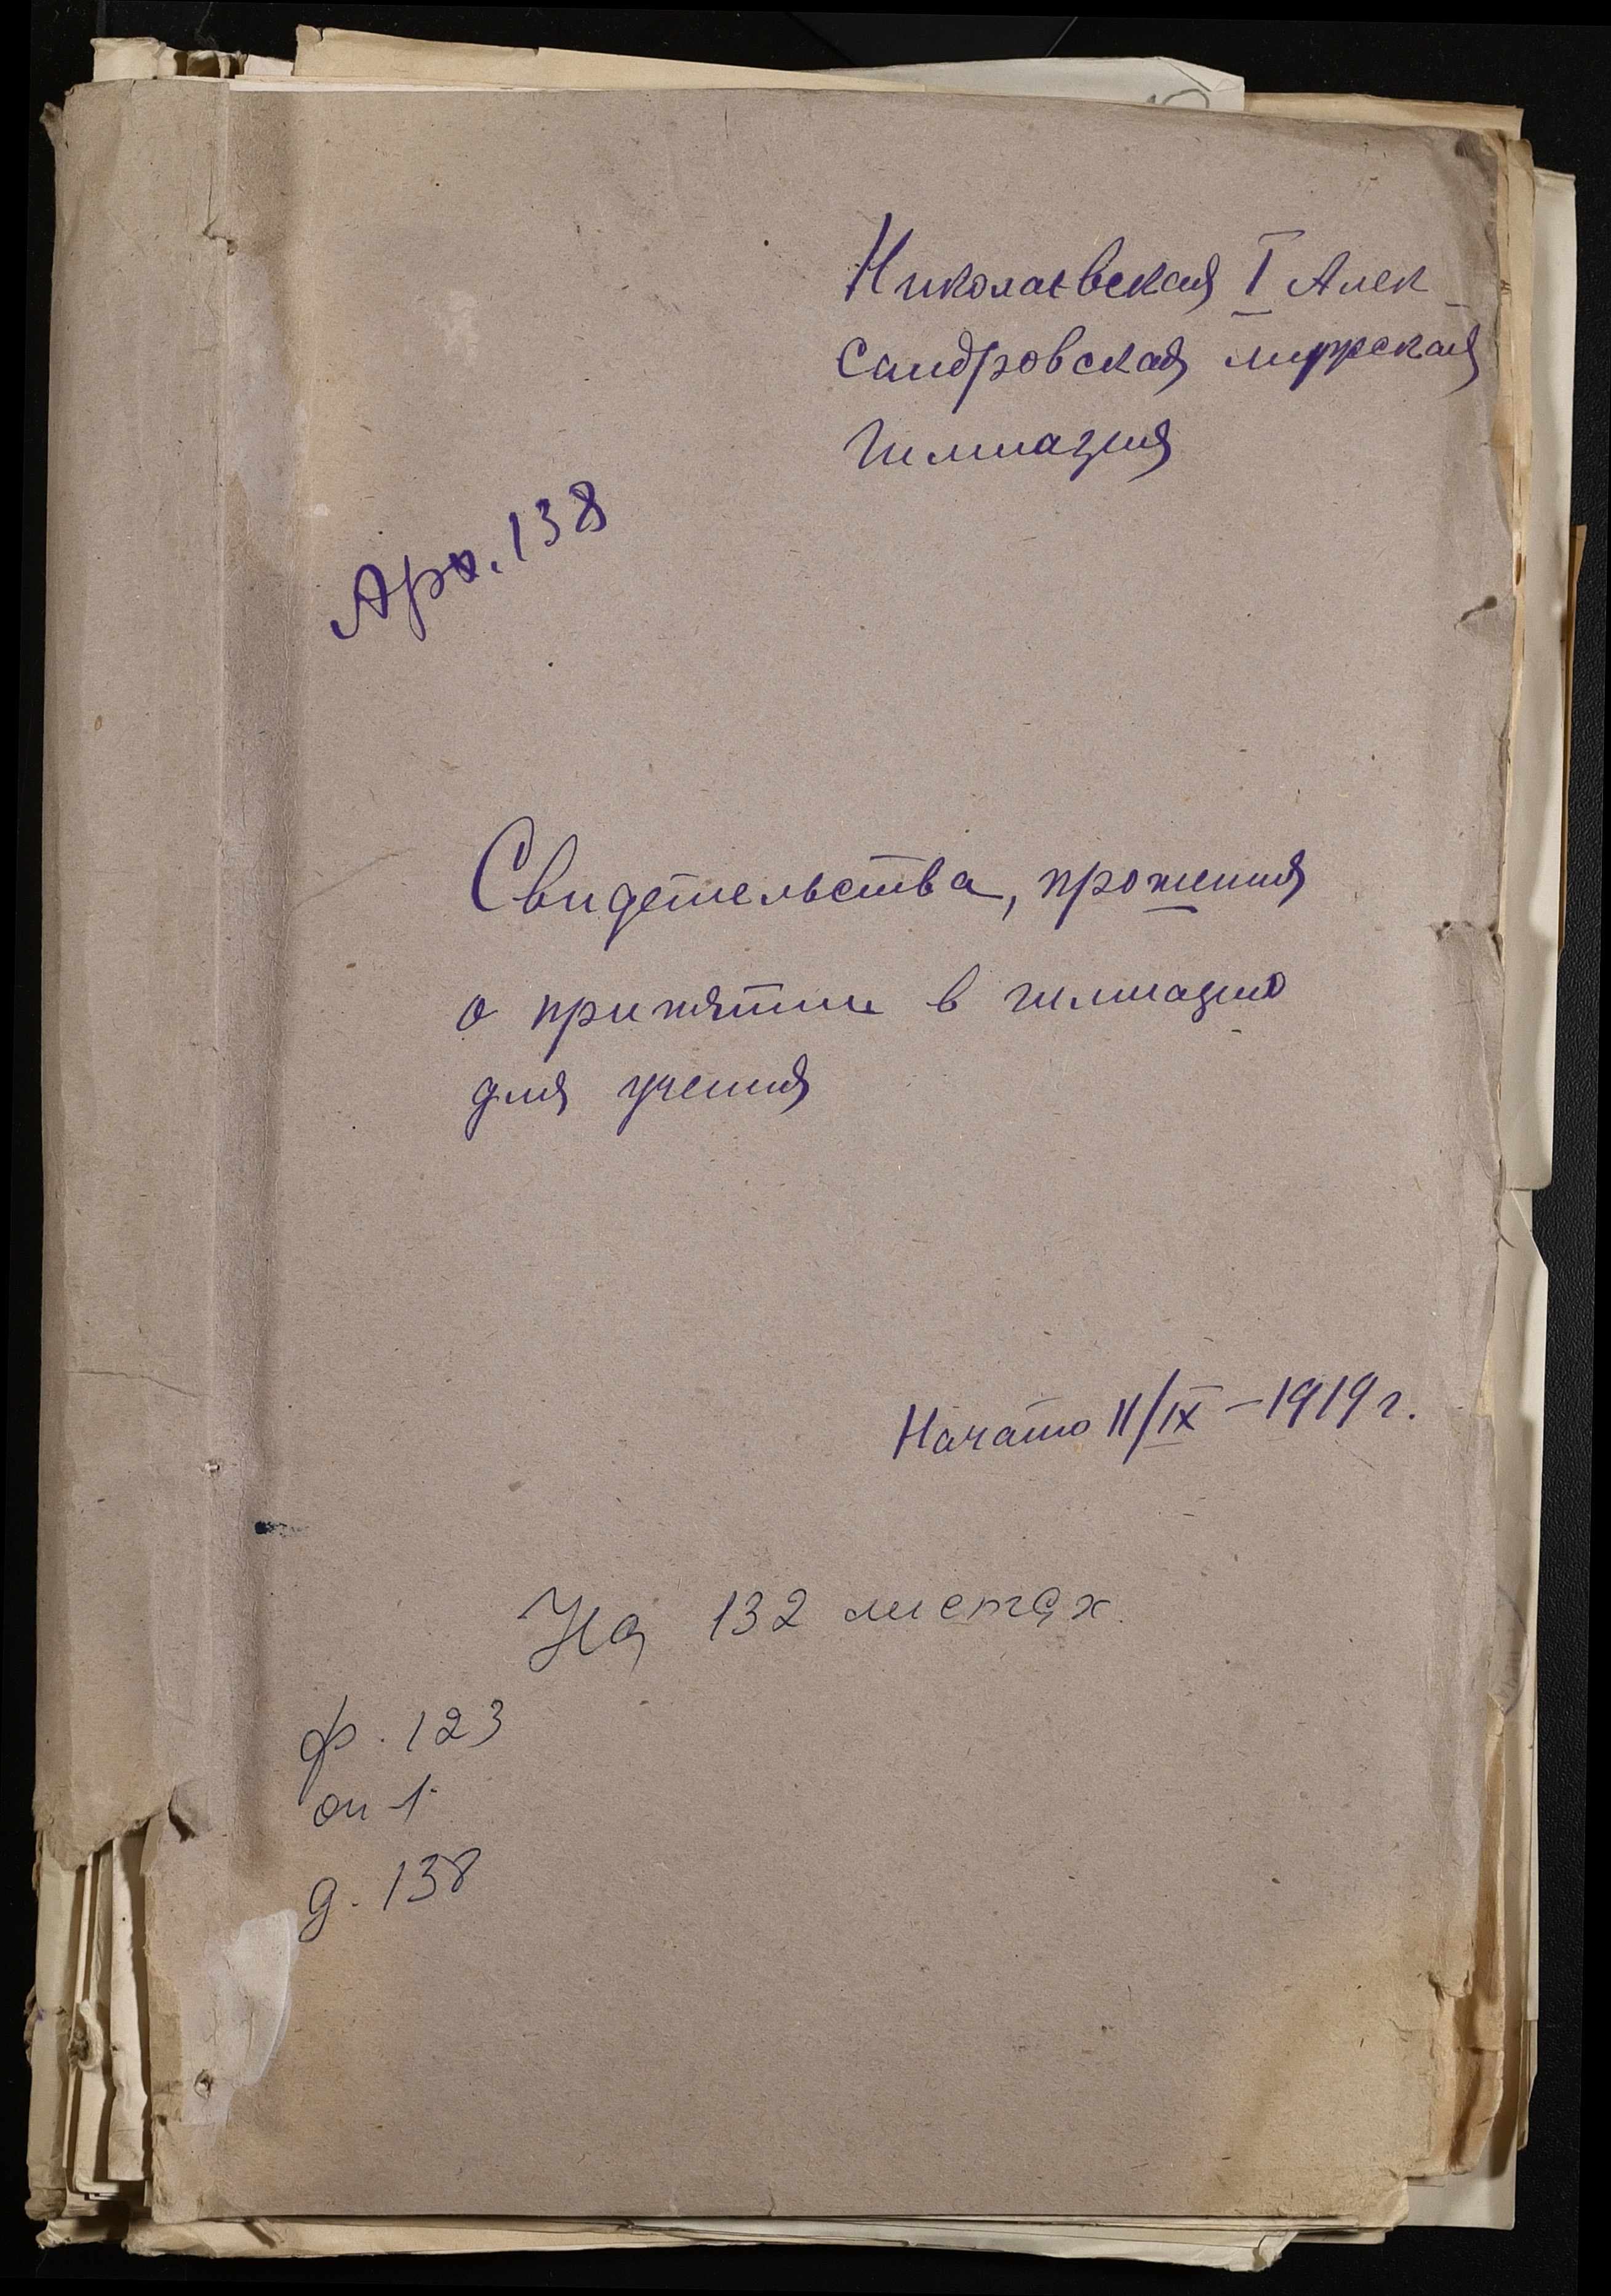 Николаевская I Алек-
сандровская мужская
гимназия
Арх. 138
Свидетельства, прошения
о принятии в гимназию
для учения
Начато 11/IX – 1919 г.
На 132 листах.
ф. 123
оп 1
д. 138